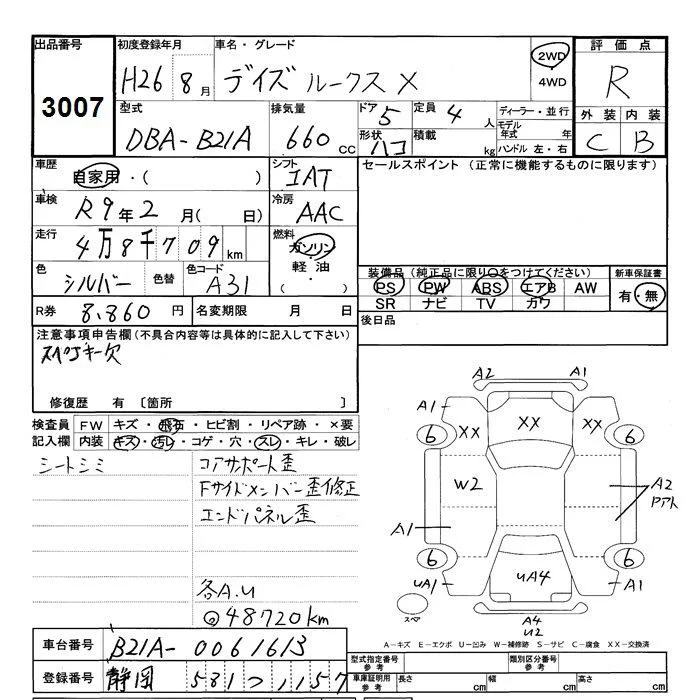 出品番号 初度登録年月 車名・グレード 評価点
3007 H26 8月 デイズ ルークス X 2WD 4WD R
型式 排気量 ドア 定員 ディーラー・並行 外装 内装
DBA-B21A 660cc 5 4人 モデル年式 年 C B
形状 ハコ 積載 kg ハンドル 左・右
車歴 自家用・( ) シフト IAT セールスポイント (正常に機能するものに限ります)
車検 R9年2月( 日) 冷房 AAC
走行 4万8千709km 燃料 ガソリン・軽油・( )
色 シルバー 色替 色コード A31 装備品(純正品に限り○をつけてください) 新車保証書
PS PW ABS エアB AW 有・無
SR ナビ TV カワ
R券 8,860円 名変期限 月 日 後日品
注意事項申告欄(不具合内容等は具体的に記入して下さい)
スペアキー欠
修復歴 有 〔箇所 〕
検査員記入欄 FW キズ・飛石・ヒビ割・リペア跡・×要
内装 キズ・汚レ・コゲ・穴・スレ・キレ・破レ
シートシミ コアサポート歪
Fサイドメンバー歪修正
エンドパネル歪
各A.U
@48720km
A2 A1
A1 XX XX XX
6 6
W2 A2
アト
A1
6 6
UA1 UA4 A1
スペア A4
U2
A-キズ E-エクボ U-凹み W-補修跡 S-サビ C-腐食 XX-交換済
車台番号 B21A-0061613 型式指定番号 参考 類別区分番号 参考
登録番号 静岡 581 つ 1157 車庫証明用 参考 長さ cm 幅 cm 高さ cm